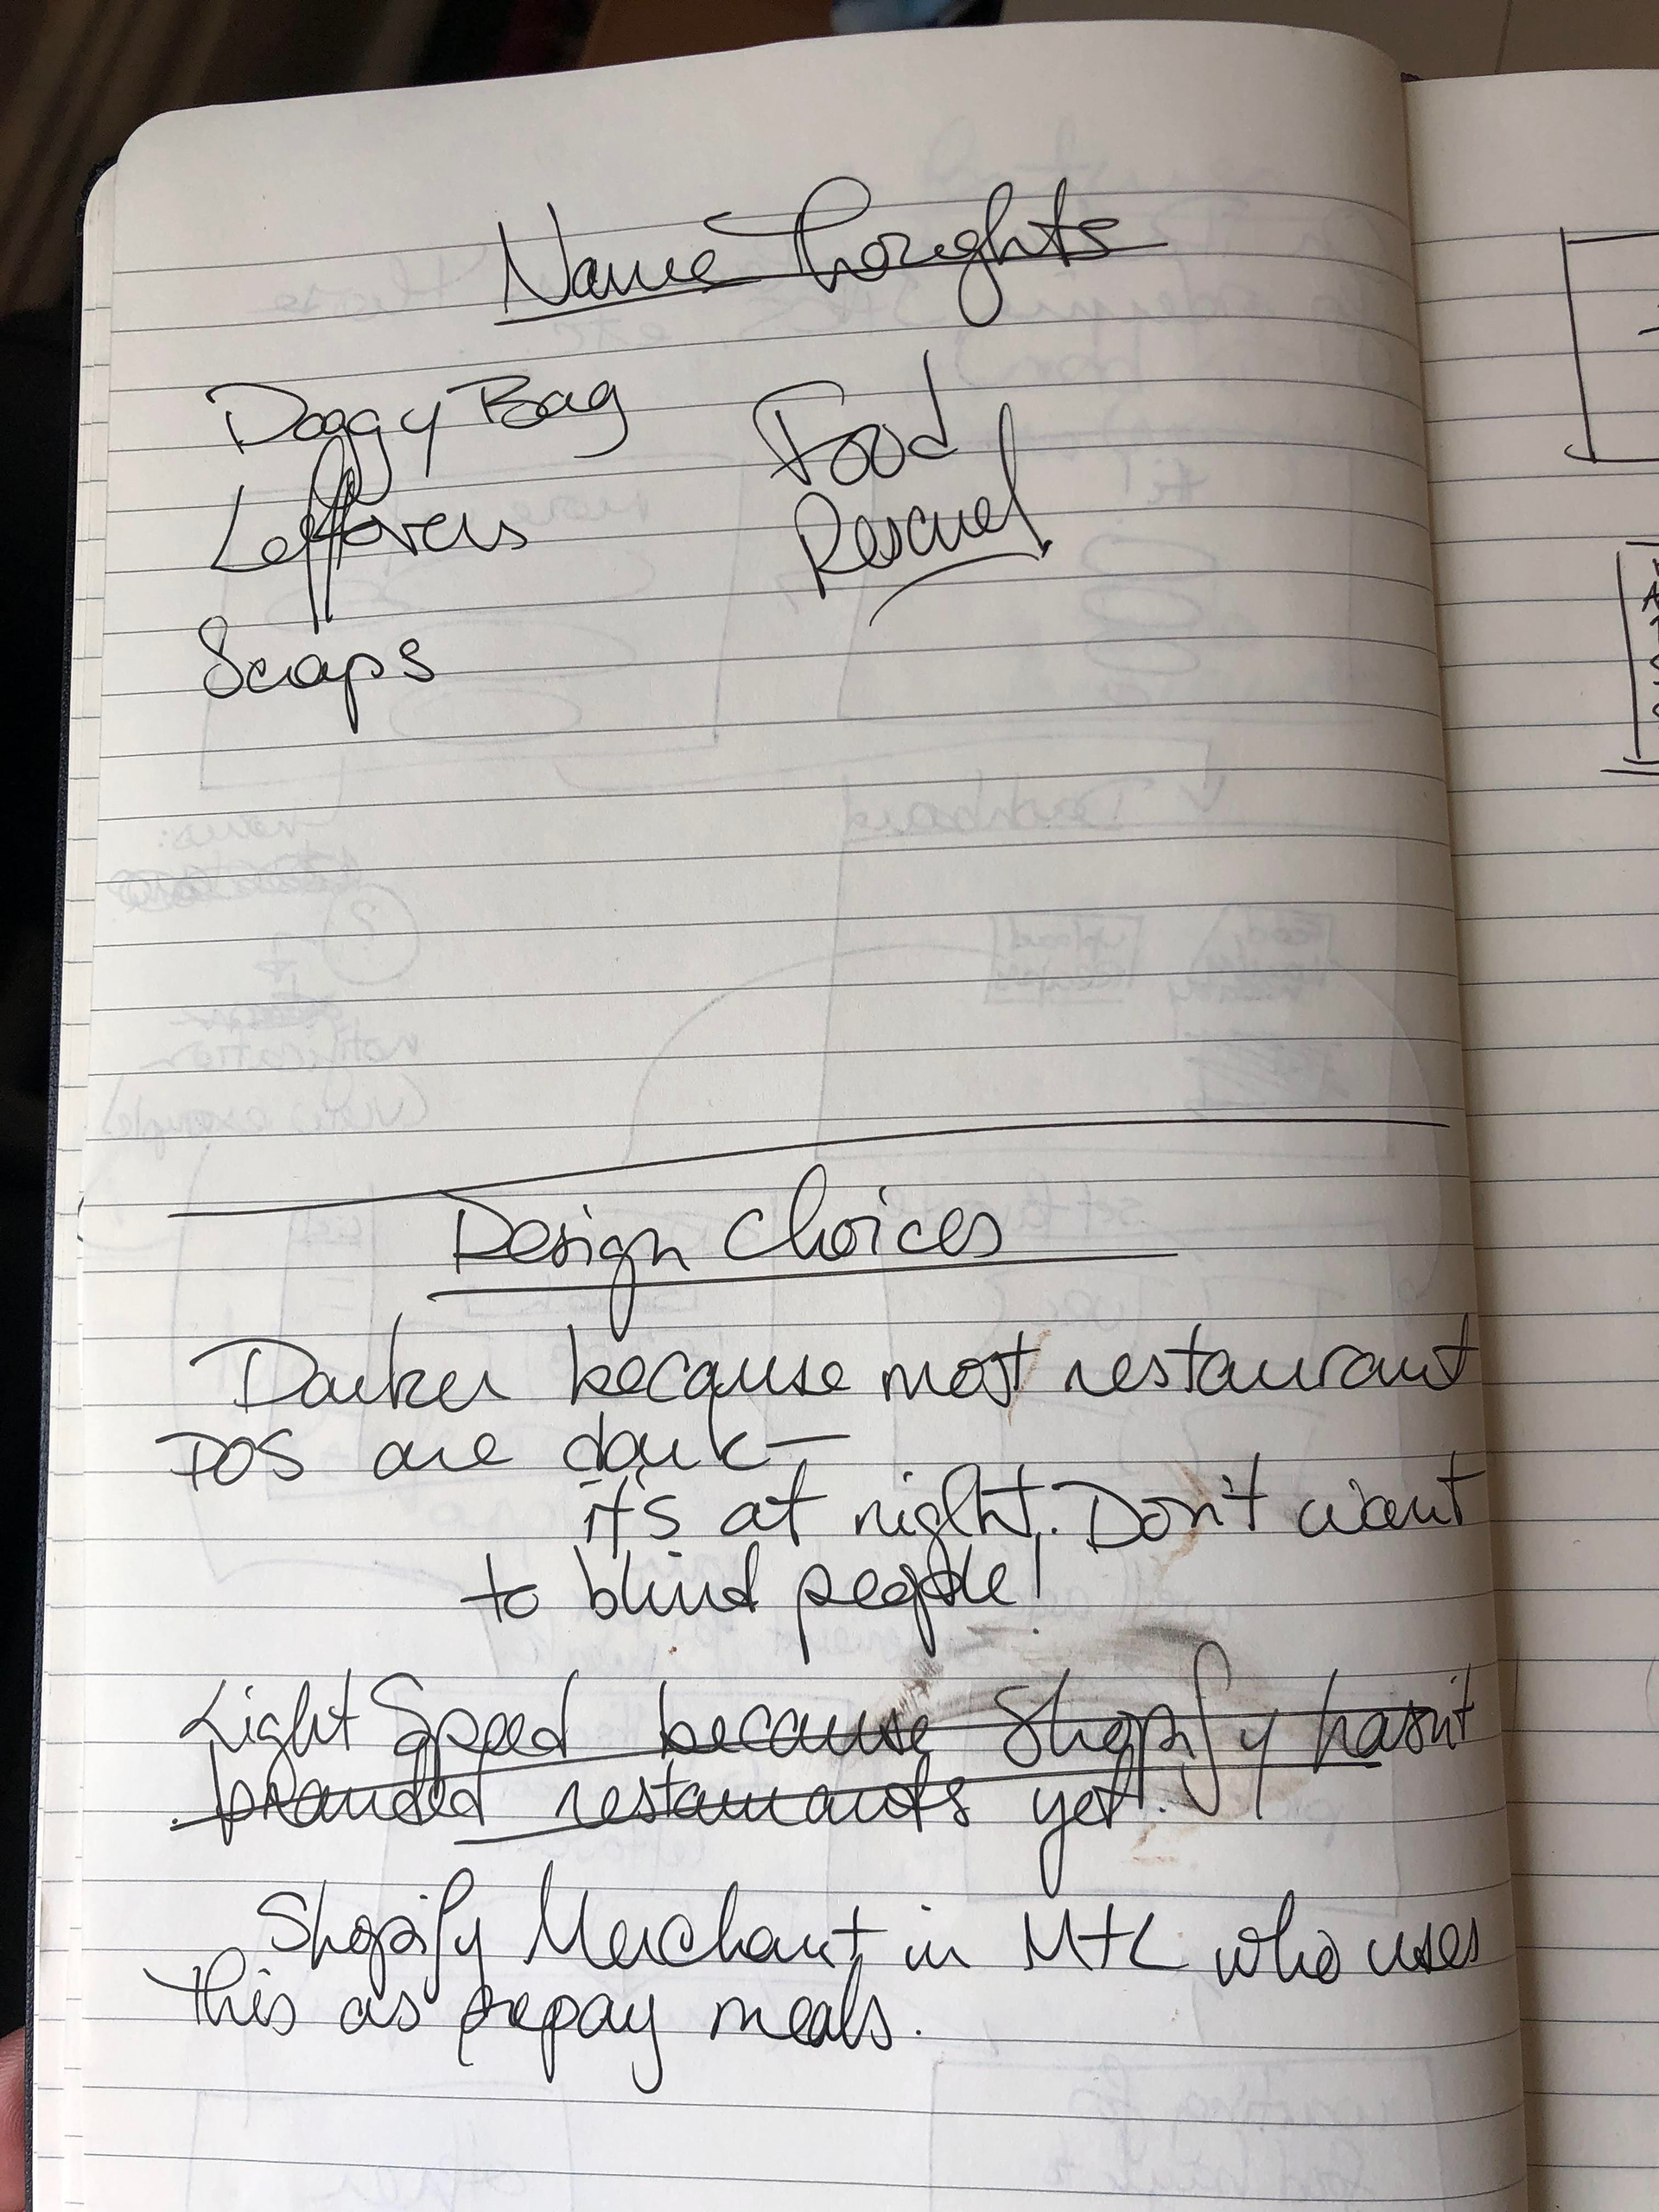 Name Thoughts
Doggy Bag
Leftovers
Scraps
Food
Rescue!
Design Choices
Darker because most restaurant
POS are dark—
it's at night. Don't want
to blind people!
LightSpeed because Shopify hasn't
branded restaurants yet.
Shopify Merchant in MTL who uses
this as prepay meals.